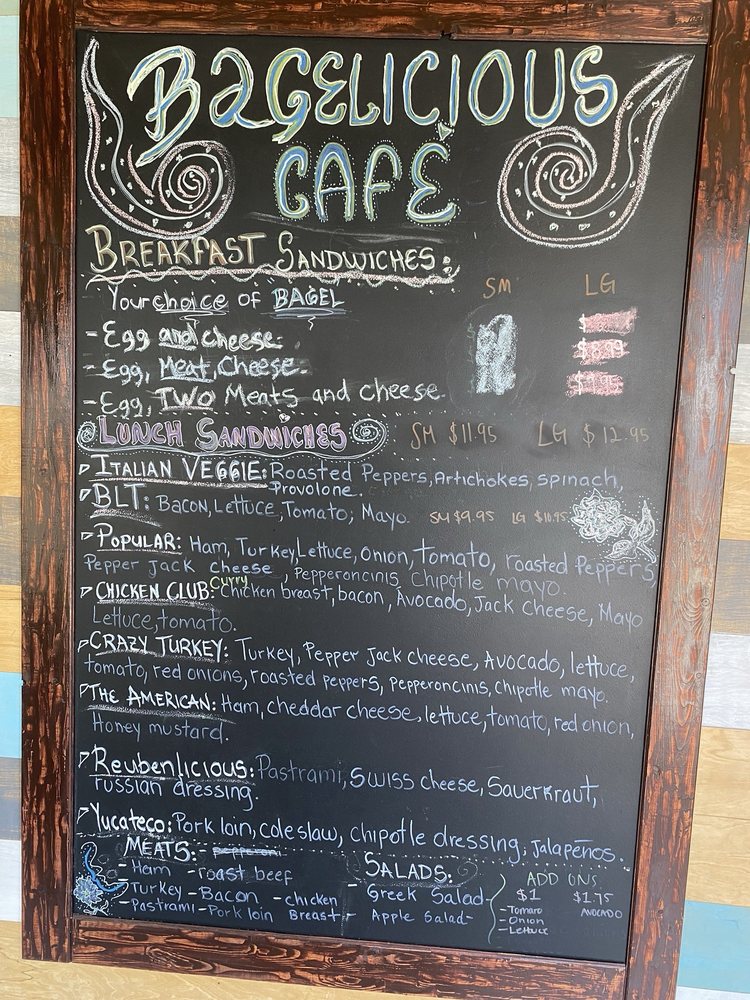 BAGELICIOUS
CAFÉ
BREAKFAST SANDWICHES:
SM LG
Your choice of BAGEL
- Egg and cheese.
- Egg, Meat, Cheese.
- Egg, TWO Meats and cheese.
LUNCH SANDWICHES SM $11.95 LG $12.95
ITALIAN VEGGIE: Roasted Peppers, Artichokes, spinach,
Provolone.
BLT: Bacon, Lettuce, Tomato, Mayo. SM $9.95 LG $10.95
POPULAR: Ham, Turkey, Lettuce, Onion, Tomato, roasted Peppers,
Pepper Jack cheese, Pepperoncinis, Chipotle mayo
CHICKEN CLUB: Curry Chicken breast, bacon, Avocado, Jack cheese, Mayo
Lettuce, tomato.
CRAZY TURKEY: Turkey, Pepper Jack cheese, Avocado, lettuce,
tomato, red onions, roasted peppers, pepperoncinis, chipotle mayo.
THE AMERICAN: Ham, cheddar cheese, lettuce, tomato, red onion,
Honey mustard.
Reubenlicious: Pastrami, Swiss cheese, Sauerkraut,
russian dressing.
Yucateco: Pork loin, coleslaw, chipotle dressing, jalapeños.
MEATS: - pepperoni
- Ham - roast beef
- Turkey - Bacon - chicken
- Pastrami - Pork loin Breast
SALADS:
- Greek Salad -
- Apple Salad -
ADD ONS
$1 $1.75
- Tomato AVOCADO
- Onion
- Lettuce